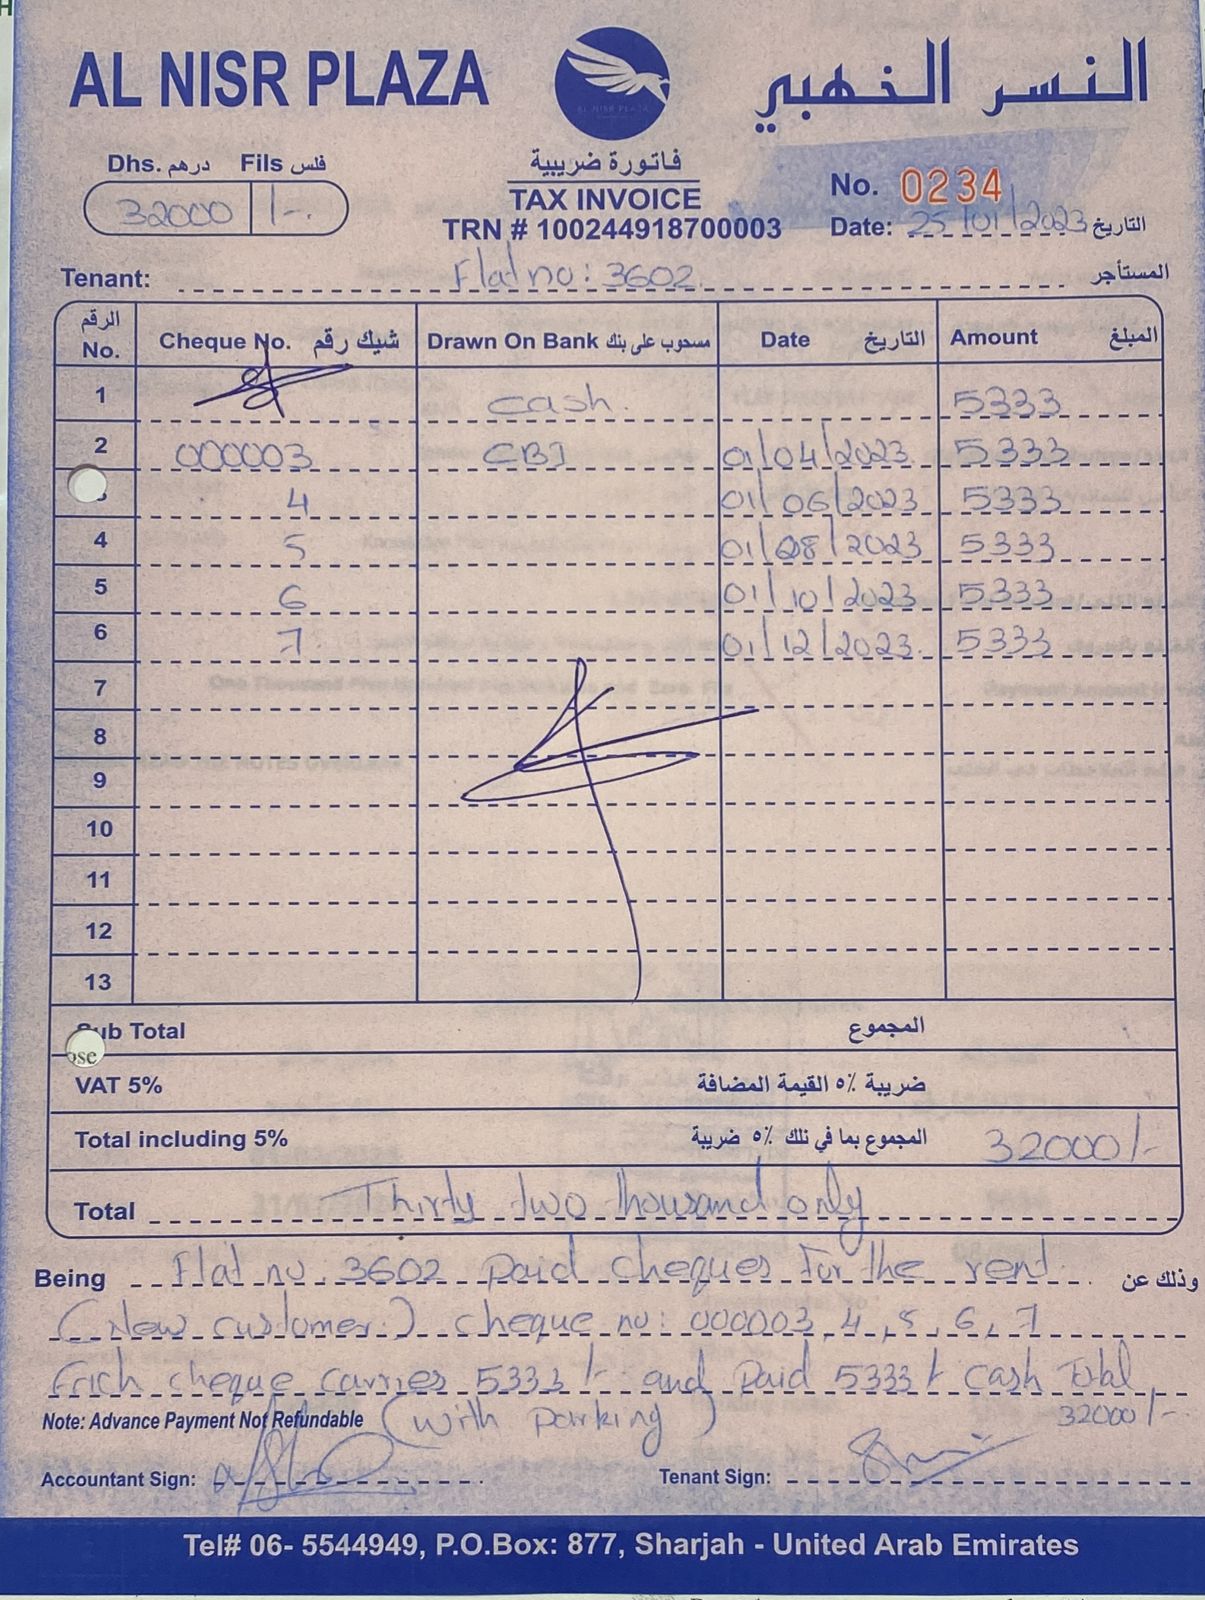 AL NISR PLAZA
AL NISR PLAZA
النسر الذهبي
Dhs. درهم Fils فلس
32000 /-
فاتورة ضريبية
TAX INVOICE
TRN # 100244918700003
No. 0234
Date: 25/01/2023 التاريخ
Tenant: Flat no: 3602 المستأجر
الرقم No. Cheque No. شيك رقم Drawn On Bank مسحوب على بنك Date التاريخ Amount المبلغ
1 cash 5333
2 000003 CBI 01/04/2023 5333
4 01/06/2023 5333
4 5 01/08/2023 5333
5 6 01/10/2023 5333
6 7 01/12/2023 5333
7
8
9
10
11
12
13
Sub Total المجموع
ose
VAT 5% ضريبة ٥٪ القيمة المضافة
Total including 5% المجموع بما في تلك ٥٪ ضريبة 32000/-
Total Thirty two thousand only
Being Flat no. 3602 Paid cheques for the rent وذلك عن
(New customer) cheque no: 000003, 4, 5, 6, 7
Each cheque carries 5333/- and Paid 5333/- Cash Total
Note: Advance Payment Not Refundable (with parking) 32000/-
Accountant Sign: Tenant Sign:
Tel# 06- 5544949, P.O.Box: 877, Sharjah - United Arab Emirates